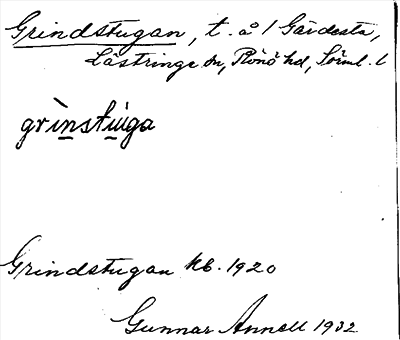 Grindstugan, t. å 1 Gärdesta,
Lästringe sn, Rönö hd, Söml. l
grìnstúga
Grindstugan kb. 1920
Gunnar Annell 1932